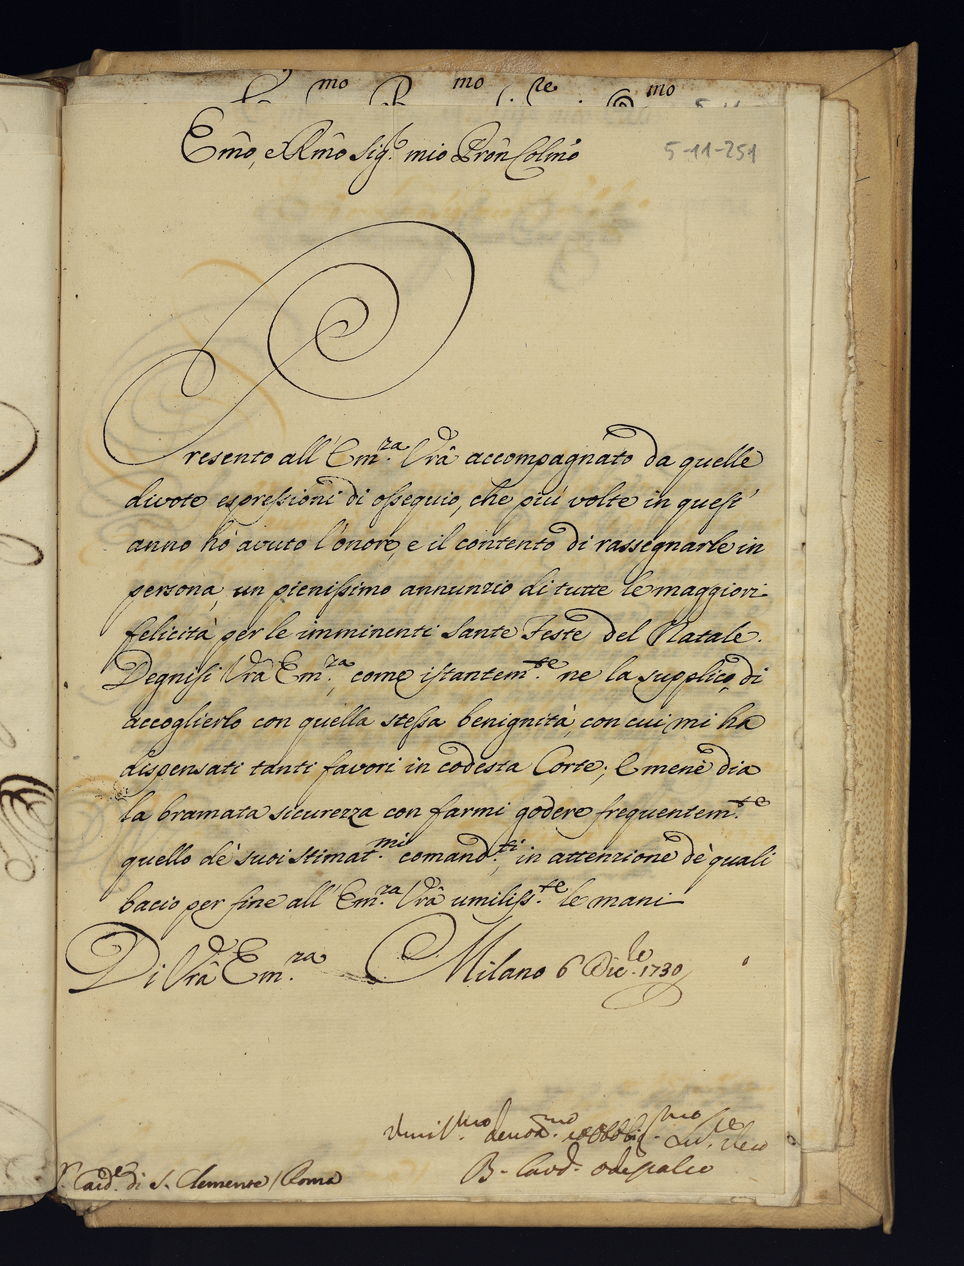 Em̃o, e Rm̃o Sig.r mio Pron̄ Colmo
5-11-251
Presento all' Em.za Vrā accompagnato da quelle
divote espressioni di ossequio, che più volte in quest'
anno hò avuto l'onore, e il contento di rassegnarle in
persona, un pienissimo annunzio di tutte le maggiori
felicità per le imminenti Sante Feste del Natale.
Degnisi Vrā Em.za, come istantem.te ne la supplico, di
accoglierlo con quella stessa benignità, con cui mi hà
dispensati tanti favori in codesta Corte; E mene dia
la bramata sicurezza con farmi godere frequentem.te
quello dè suoi stimat.mi comand.ti, in attenzione dè quali
bacio per fine all' Em.za Vrā umiliss.te le mani
Di Vrā Em.za Milano 6 Dic.le 1730
Umil.mo devot.mo
B. Card. Odescalco
Card.e di S. Clemente / Roma